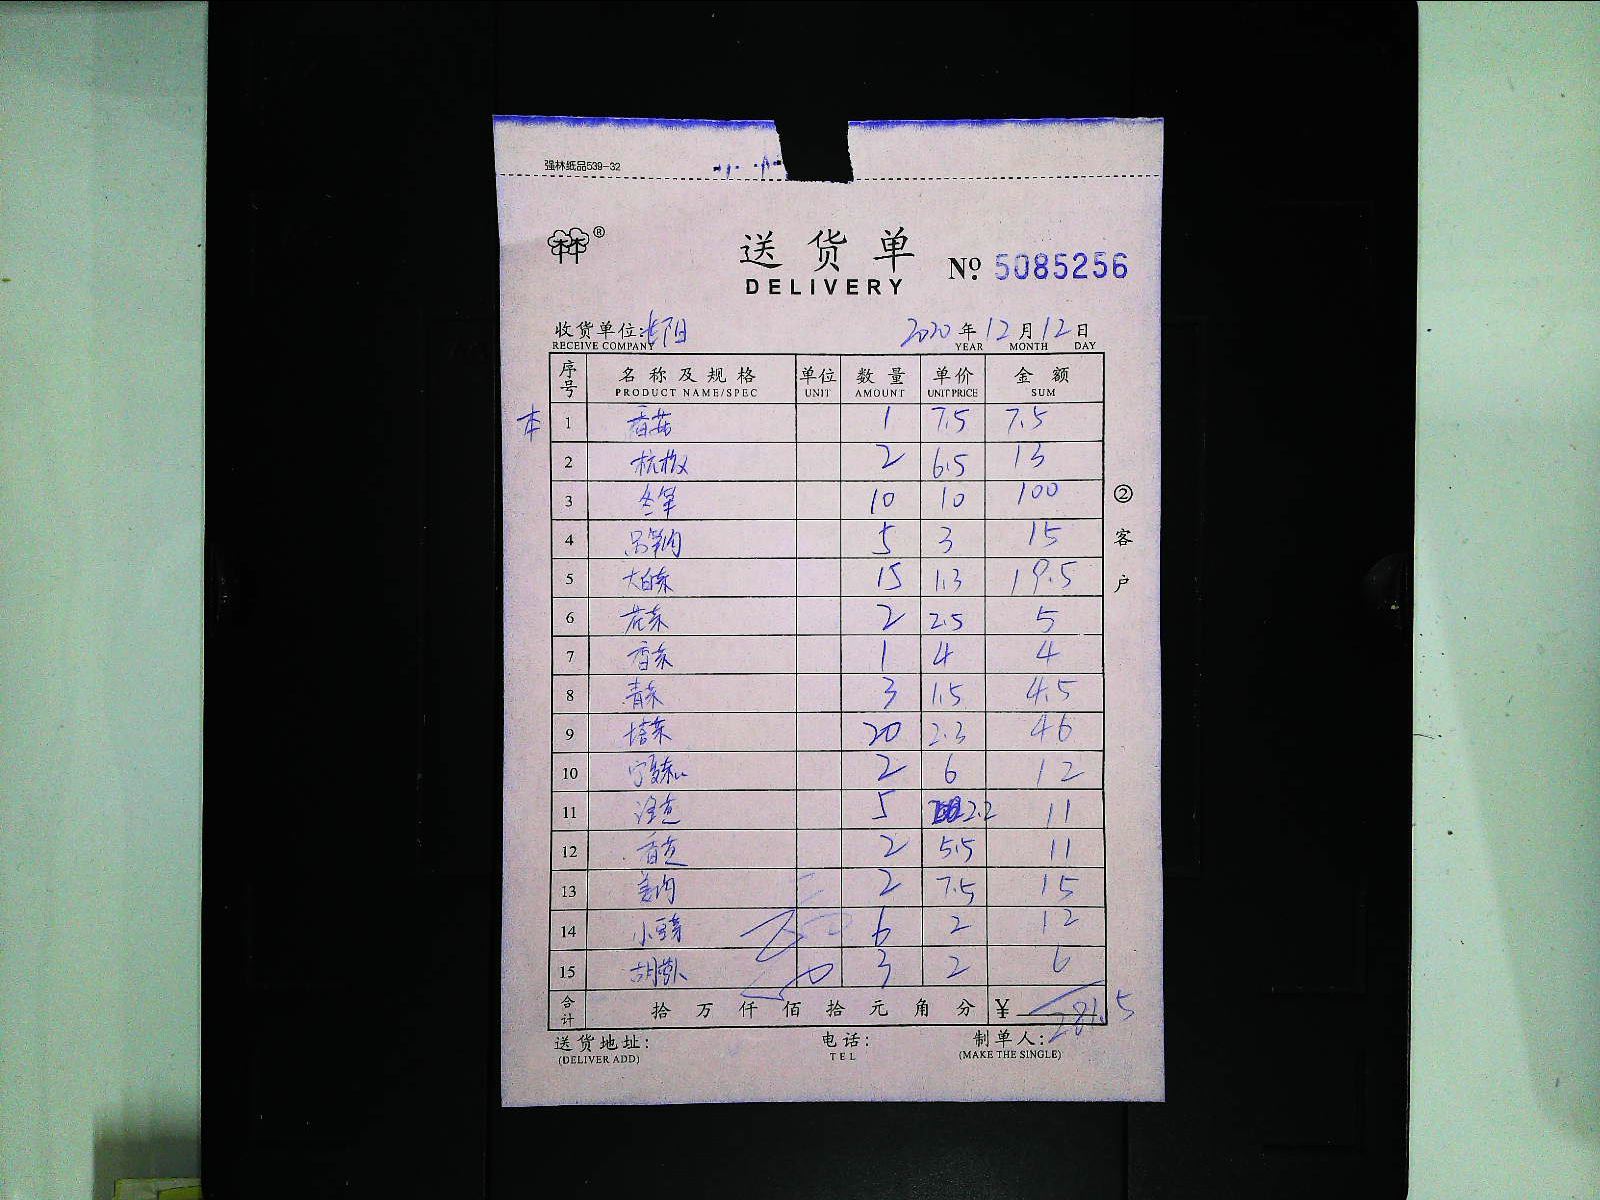 强林纸品539-32
林®
送货单
DELIVERY
No. 5085256
收货单位: 长阳 2020年12月12日
RECEIVE COMPANY YEAR MONTH DAY
序号 名称及规格 单位 数量 单价 金额
PRODUCT NAME/SPEC UNIT AMOUNT UNIT PRICE SUM
本 1 香菇 1 7.5 7.5
2 杭椒 2 6.5 13
3 冬笋 10 10 100
4 5 3 15
5 大白菜 15 1.3 19.5
6 花菜 2 2.5 5
7 香菜 1 4 4
8 青菜 3 1.5 4.5
9 塔菜 20 2.3 46
10 宁夏菜心 2 6 12
11 5 2.2 11
12 香芝 2 5.5 11
13 姜肉 2 7.5 15
14 小豆芽 6 2 12
15 胡萝卜 3 2 6
合计 拾万仟佰拾元角分 ¥ 281.5
②客户
送货地址: 电话: 制单人:
(DELIVER ADD) TEL (MAKE THE SINGLE)